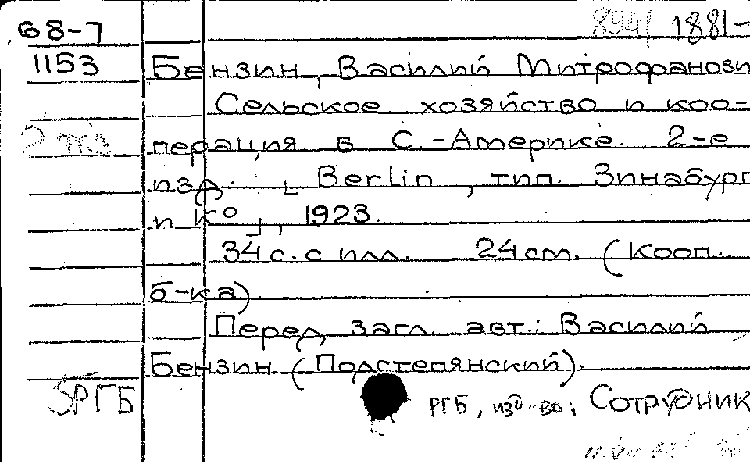 68-7 1881-
1153 Бензин, Василий Митрофанови
Сельское хозяйство и коо-
перация в С.-Америке. 2-е
изд. [Berlin, тип. Зинабург
и К°], 1923.
34 с. с илл. 24 см. (Кооп.
б-ка).
Перед загл. авт.: Василий
Бензин (Подстепянский).
РГБ РГБ, изд-во; Сотрудник